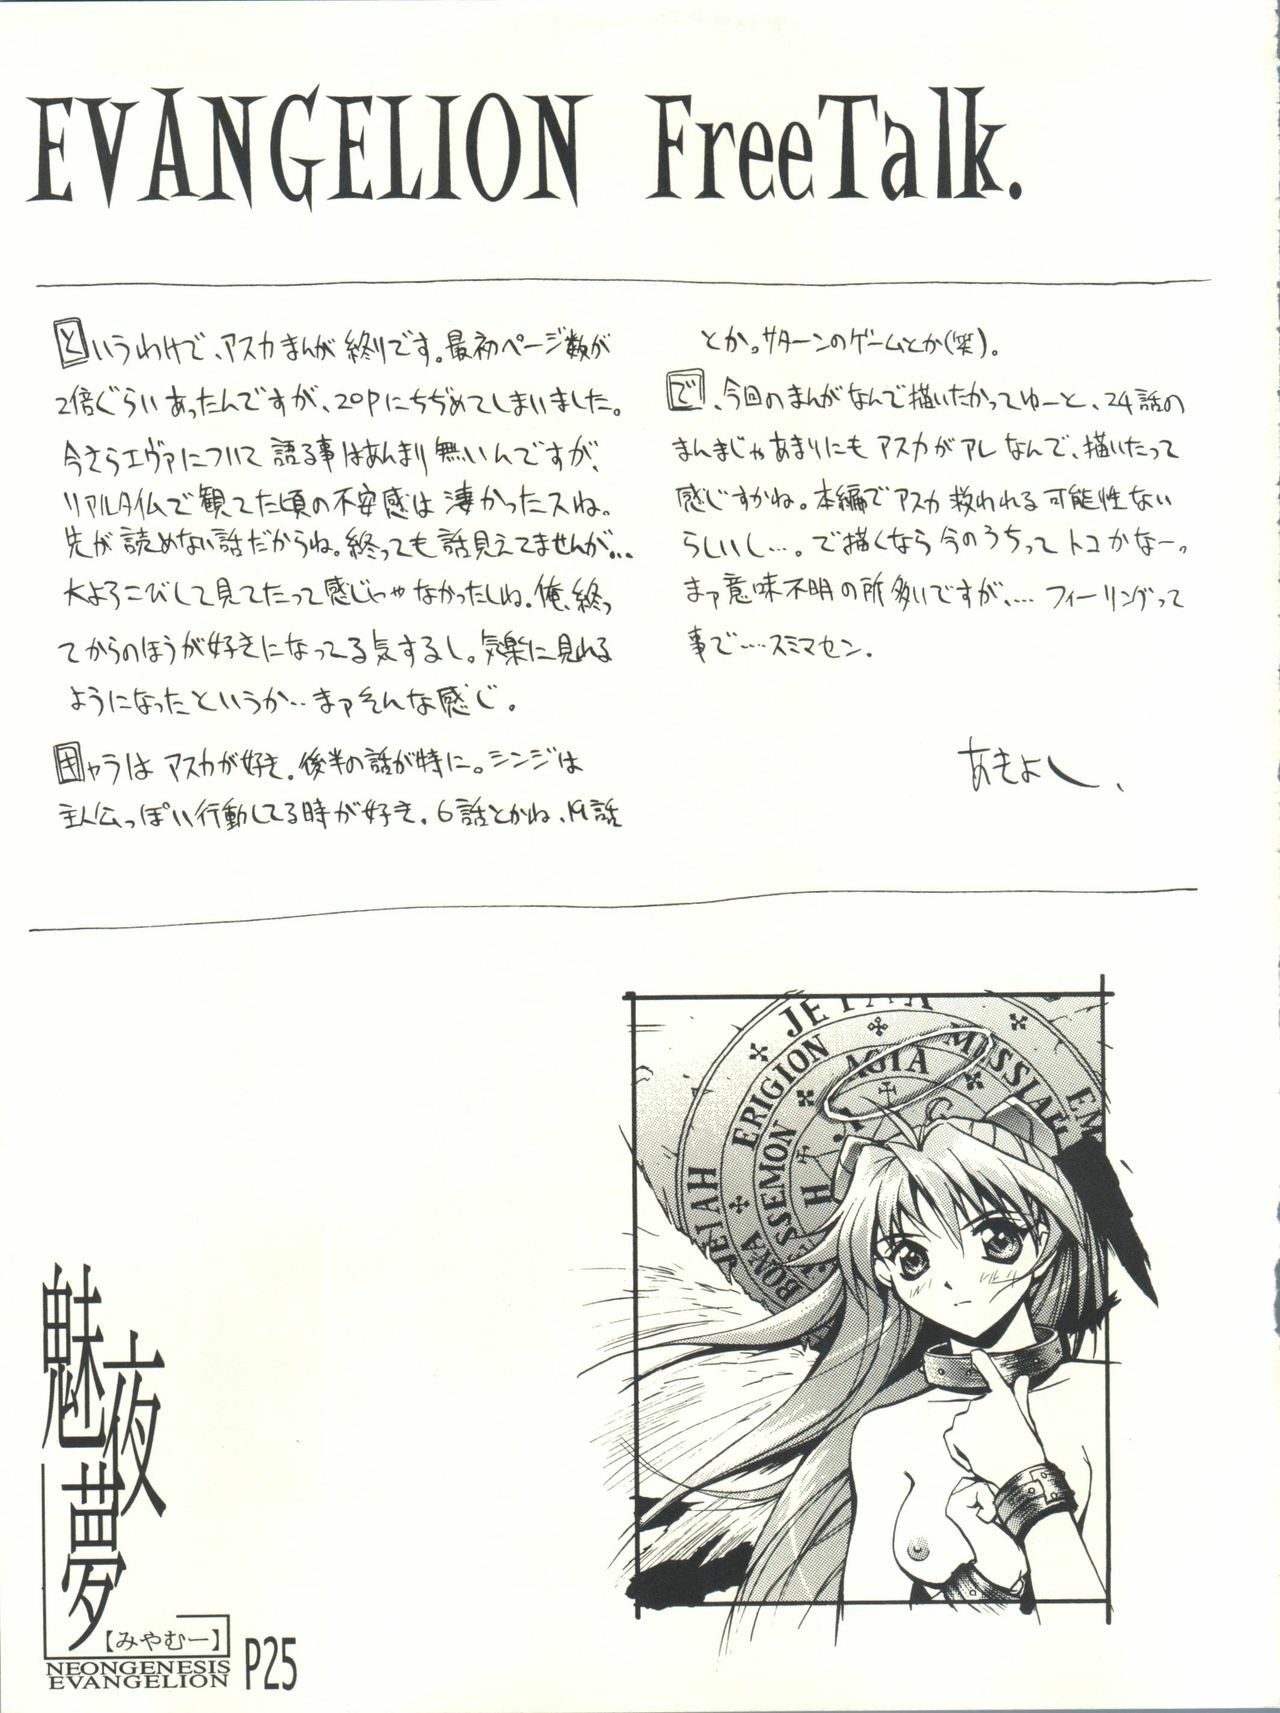 EVANGELION FreeTalk.
というわけで、アスカまんが終りです。最初ページ数が
2倍ぐらいあったんですが、20Pにちぢめてしまいました。
今さらエヴァについて語る事はあんまり無いんですが、
リアルタイムで観てた頃の不安感は凄かったスね。
先が読めない話だからね。終っても話見えてませんが…
大よろこびして見てたって感じじゃなかったしね。俺、終っ
てからのほうが好きになってる気するし。気楽に見れる
ようになったというか…まァそんな感じ。
キャラはアスカが好き。後半の話が特に。シンジは
主人公っぽい行動してる時が好き。6話とかね、19話
とか。サターンのゲームとか(笑)。
で、今回のまんがなんで描いたかってゆーと、24話の
まんまじゃあまりにもアスカがアレなんで、描いたって
感じすかね。本編でアスカ救われる可能性ない
らしいし…。で描くなら今のうちってトコかなー。
まァ意味不明の所多いですが、…フィーリングって
事で……スミマセン。
あきよし、
JEIAH
ERIGION
AGIA
MESSIAE
EM
JEIAH
BONA
ESSEMON
H
G
魅夜夢
【みやむー】
NEONGENESIS
EVANGELION
P25